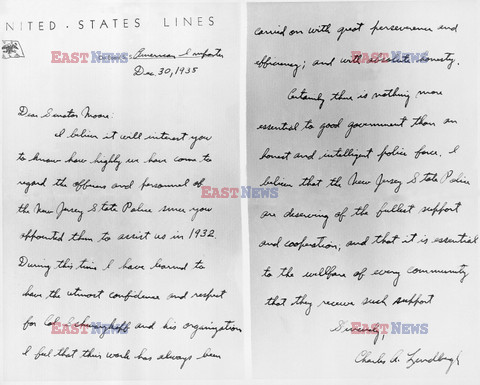 NITED · STATES LINES
American Importer
Dec. 30, 1935
Dear Senator Moore:
I believe it will interest you
to know how highly we have come to
regard the officers and personnel of
the New Jersey State Police since you
appointed them to assist us in 1932.
During this time I have learned to
have the utmost confidence and respect
for Col. Schwarzkopf and his organization
I feel that their work has always been
carried on with great perseverance and
efficiency; and with absolute honesty.
Certainly there is nothing more
essential to good government than an
honest and intelligent police force. I
believe that the New Jersey State Police
are deserving of the fullest support
and cooperation, and that it is essential
to the wellfare of every community
that they receive such support
Sincerely,
Charles A. Lindbergh
EASTNEWS
EASTNEWS
EASTNEWS
EASTNEWS
EASTNEWS